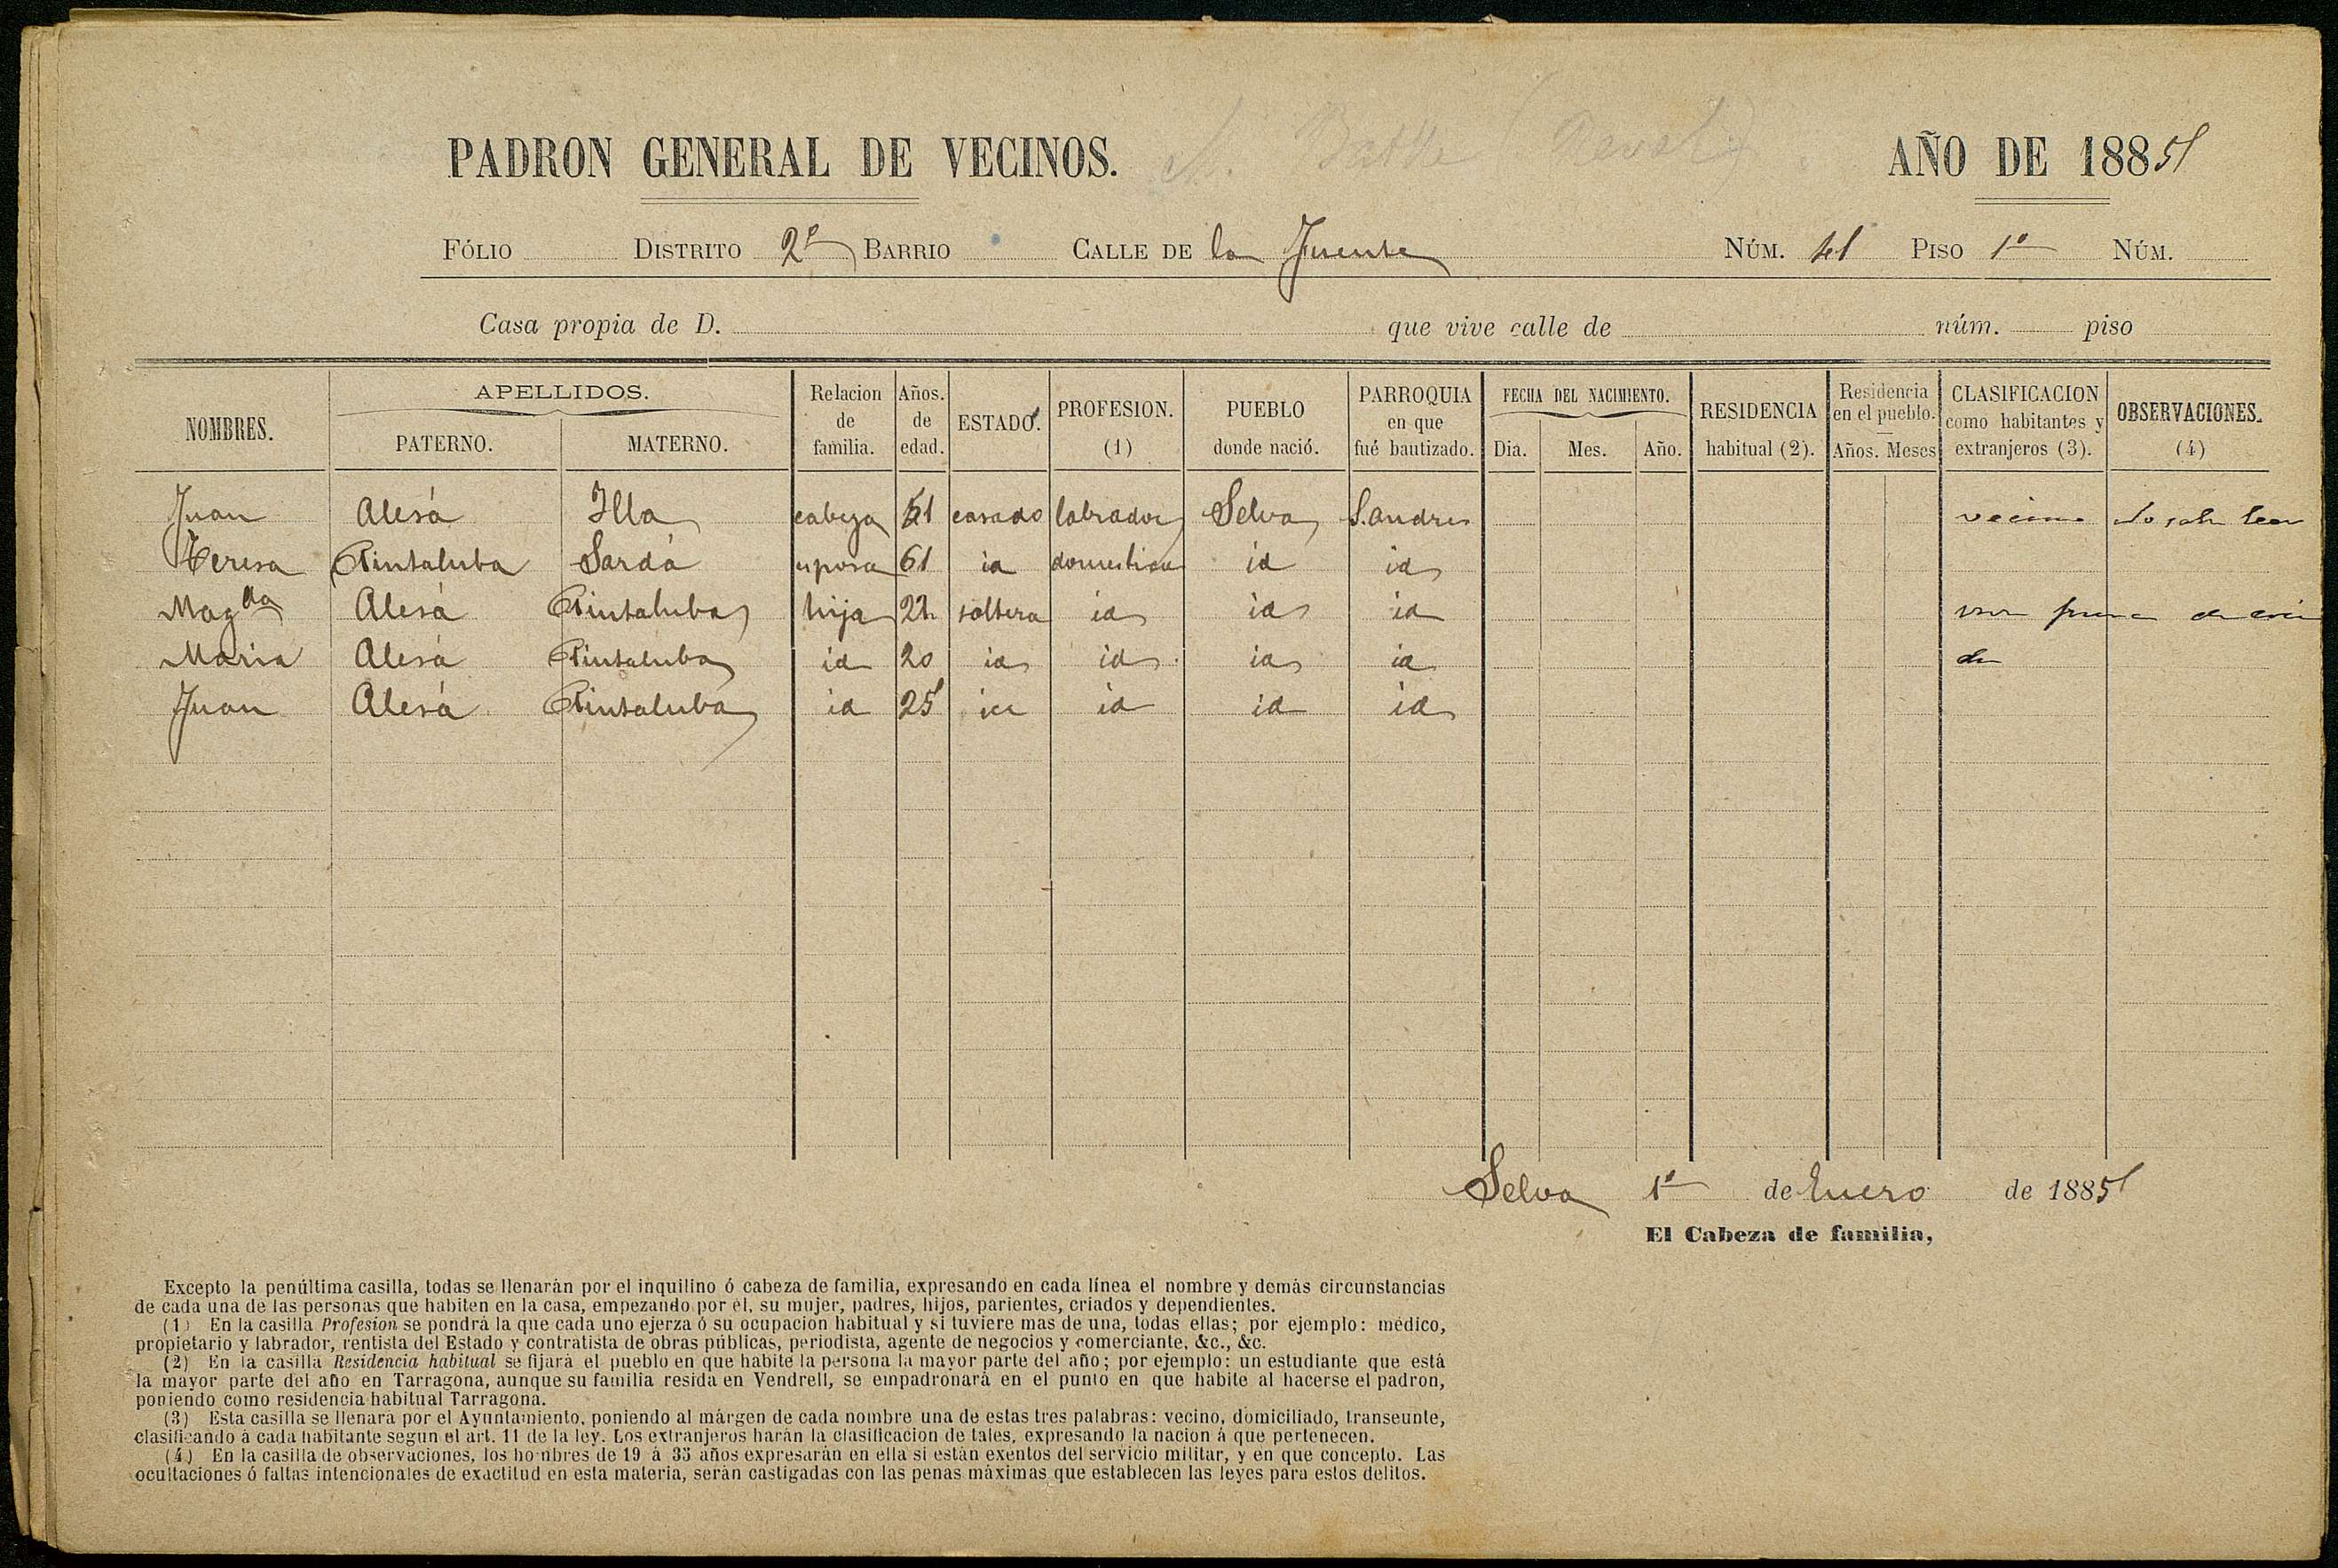 PADRON GENERAL DE VECINOS. AÑO DE 1885
FÓLIO DISTRITO 2º BARRIO CALLE DE la Fuente NÚM. 41 PISO 1º NÚM.
Casa propia de D. que vive calle de núm. piso
NOMBRES. APELLIDOS. PATERNO. MATERNO. Relacion de familia. Años. de edad. ESTADO. PROFESION. (1) PUEBLO donde nació. PARROQUIA en que fué bautizado. FECHA DEL NACIMIENTO. Dia. Mes. Año. RESIDENCIA habitual (2). Residencia en el pueblo. Años. Meses CLASIFICACION como habitantes y extranjeros (3). OBSERVACIONES. (4)
Juan Alesá Illa cabeza 51 casado labrador Selva S. Andres vecino No sabe leer
Teresa Pintaluba Sardá esposa 61 id domestica id id
Magda Alesá Pintaluba hija 22 soltera id id id
Maria Alesá Pintaluba id 20 id id id id
Juan Alesá Pintaluba id 25 id id id id
Selva 1º de Enero de 1885
El Cabeza de familia,
Excepto la penúltima casilla, todas se llenarán por el inquilino ó cabeza de familia, expresando en cada línea el nombre y demás circunstancias
de cada una de las personas que habiten en la casa, empezando por él, su mujer, padres, hijos, parientes, criados y dependientes.
(1) En la casilla Profesion se pondrá la que cada uno ejerza ó su ocupacion habitual y si tuviere mas de una, todas ellas; por ejemplo: médico,
propietario y labrador, rentista del Estado y contratista de obras públicas, periodista, agente de negocios y comerciante, &c., &c.
(2) En la casilla Residencia habitual se fijará el pueblo en que habite la persona la mayor parte del año; por ejemplo: un estudiante que está
la mayor parte del año en Tarragona, aunque su familia resida en Vendrell, se empadronará en el punto en que habite al hacerse el padron,
poniendo como residencia habitual Tarragona.
(3) Esta casilla se llenara por el Ayuntamiento, poniendo al márgen de cada nombre una de estas tres palabras: vecino, domiciliado, transeunte,
clasificando á cada habitante segun el art. 11 de la ley. Los extranjeros harán la clasificacion de tales, expresando la nacion á que pertenecen.
(4) En la casilla de observaciones, los hombres de 19 á 35 años expresarán en ella si están exentos del servicio militar, y en que concepto. Las
ocultaciones ó faltas intencionales de exactitud en esta materia, serán castigadas con las penas máximas que establecen las leyes para estos delitos.